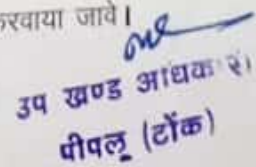 करवाया जावे।
उप खण्ड अधिकारी
पीपलू (टोंक)